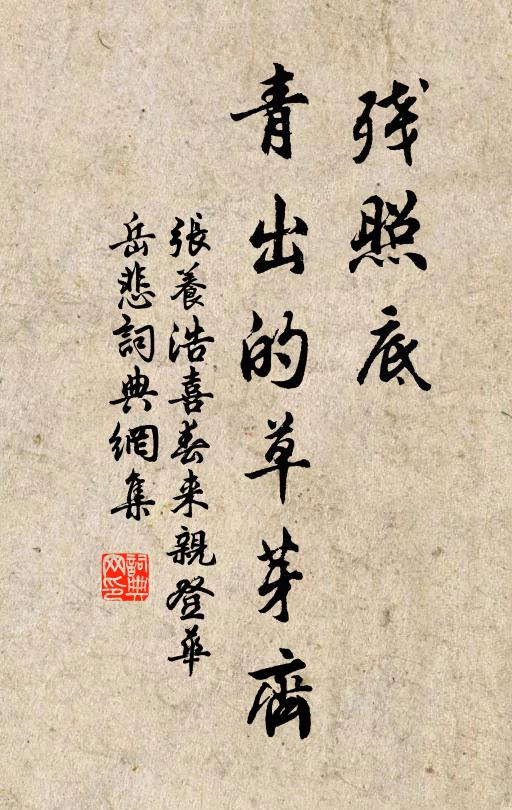 残照底
青出的草芽齊
張養浩喜春来親登華
岳悲詞典網集
詞典
网印